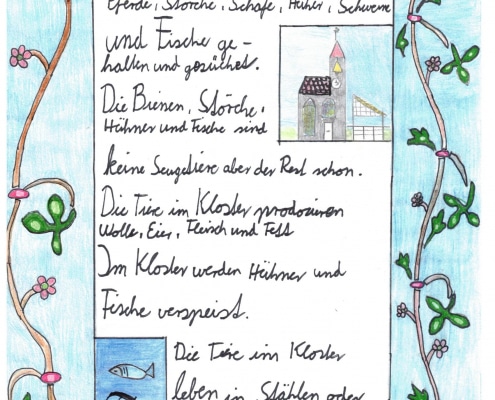 Pferde, Störche, Schafe, Hüher, Schweine
und Fische ge-
halten und gezüchtet.
Die Bienen, Störche,
Hühner und Fische sind
keine Seugetiere aber der Rest schon.
Die Tiere im Kloster prodozieren
Wolle, Eier, Fleisch und Fett
Im Kloster werden Hühner und
Fische verspeist.
Die Tiere im Kloster
leben in Stählen oder